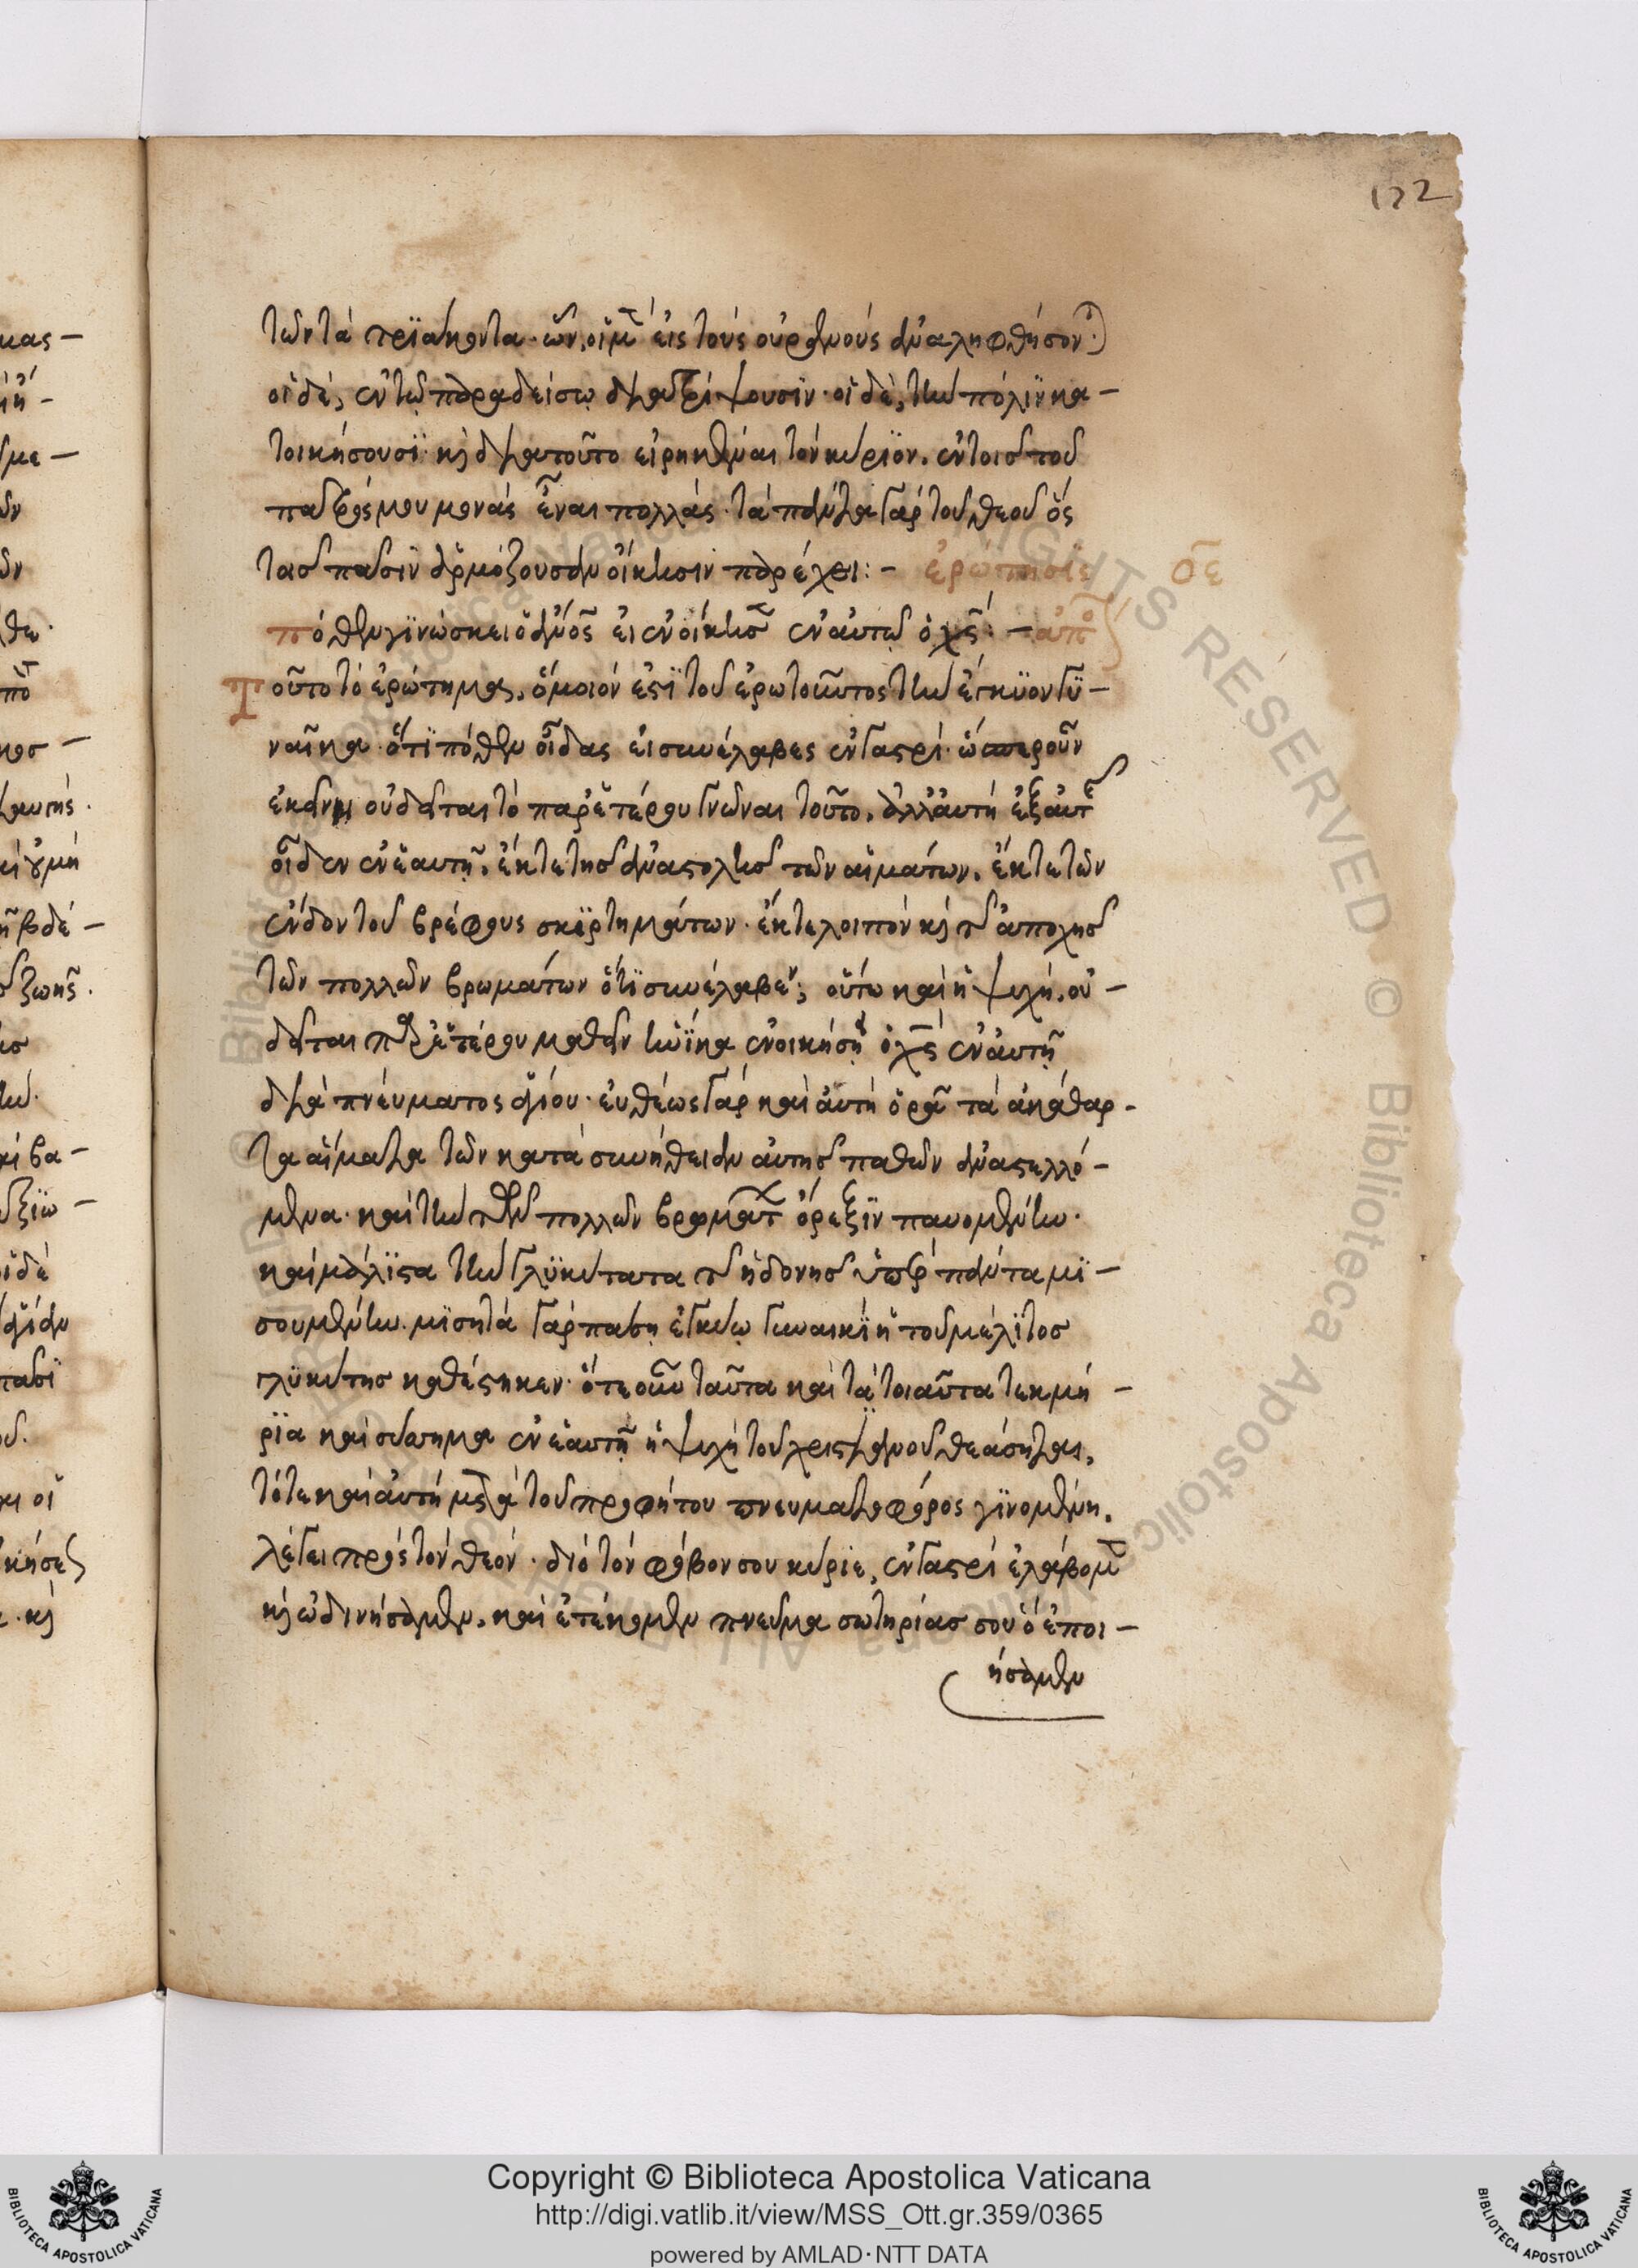 172
τῶν τὰ τριάκοντα· ὧν, οἱ μ(ὲν) εἰς τοὺς οὐρανοὺς ἀναληφθήσον(ται)
οἱ δὲ, ἐν τῷ παραδείσῳ διατρίψουσϊν· οἱ δὲ, τὴν πόλϊν κα-
τοικήσουσϊ· κ(αὶ) διατοῦτο εἰρηκέναι τὸν κύρϊον. ἐν τοῖς τοῦ
πατρός μου μονὰς εἶναι πολλάς· τὰ πάντα γὰρ τοῦ θεοῦ ὅς
τας πᾶσϊν ἁρμόζουσαν οἴκησιν παρέχει:- ἐρώτησϊς οε
πόθεν γϊνώσκει ὁ ἄν(θρωπ)ος εἰ ἐνοίκησ(εν) ἐν αὐτῷ ὁ χ(ριστό)ς:- ἀπό
Τοῦτο τὸ ἐρώτημα, ὅμοιόν ἐστϊ τοῦ ἐρωτοῦντος τὴν ἔγκυον γϋ-
ναῖκα· ὅτϊ πόθεν οἶδας εἰ συνέλαβες ἐν γαστρί· ὥσπερ οὖν
ἐκείνη οὐ δεῖται τὸ παρ' ἑτέρου γνῶναι τοῦτο, ἀλλ' αὐτὴ ἐξ αὐτῆς
οἶδεν ἐν ἑαυτῇ, ἔκ τε τῆς ἀναστολῆς τῶν αἱμάτων, ἔκ τε τῶν
ἔνδον τοῦ βρέφους σκϊρτημάτων· ἔκ τε λοιπὸν κ(αὶ) τῆς ἀποχῆς
τῶν πολλῶν βρωμάτων ὅτϊ συνέλαβεν; οὕτω καὶ ἡ ψυχὴ, οὐ-
δεῖται παρ' ἑτέρου μαθεῖν ἡνίκα ἐνοικήσῃ ὁ χ(ριστὸ)ς ἐν αὐτῇ
διὰ πνεύματος ἁγίου· εὐθέως γὰρ καὶ αὐτὴ ὁρᾷ τὰ ἀκάθαρ-
τα αἵματα τῶν κατὰ συνήθειαν αὐτῆς παθῶν ἀναστελλό-
μενα· καὶ τὴν τῶν πολλῶν βρωμάτ(ων) ὄρεξϊν παυομένην·
καὶ μάλϊστα τὴν γλϋκύτατα τῆς ἡδονῆς ὑπὲρ πάντα μϊ-
σουμένην. μϊσητὰ γὰρ πάσῃ ἐγκύῳ γυναικϊ ἡ τοῦ μέλϊτος
γλϋκύτης καθέστηκεν· ὅτε οὖν ταῦτα καὶ τὰ τοιαῦτα τεκμή-
ρϊα καὶ σύσσημα ἐν ἑαυτῇ ἡ ψυχὴ τοῦ χριστϊανοῦ θεάσηται,
τότε καὶ αὐτὴ μετὰ τοῦ προφήτου πνευματοφόρος γϊνομένη,
λέγει πρὸς τὸν θεόν· διὸ τὸν φόβον σου κύριε, ἐν γαστρὶ ἐλάβομ(εν)
κ(αὶ) ὠδινήσαμεν, καὶ ἐτέκομεν πνεῦμα σωτηρίας σου ὃ ἐποι-
ήσαμεν
Copyright © Biblioteca Apostolica Vaticana
http://digi.vatlib.it/view/MSS_Ott.gr.359/0365
powered by AMLAD·NTT DATA